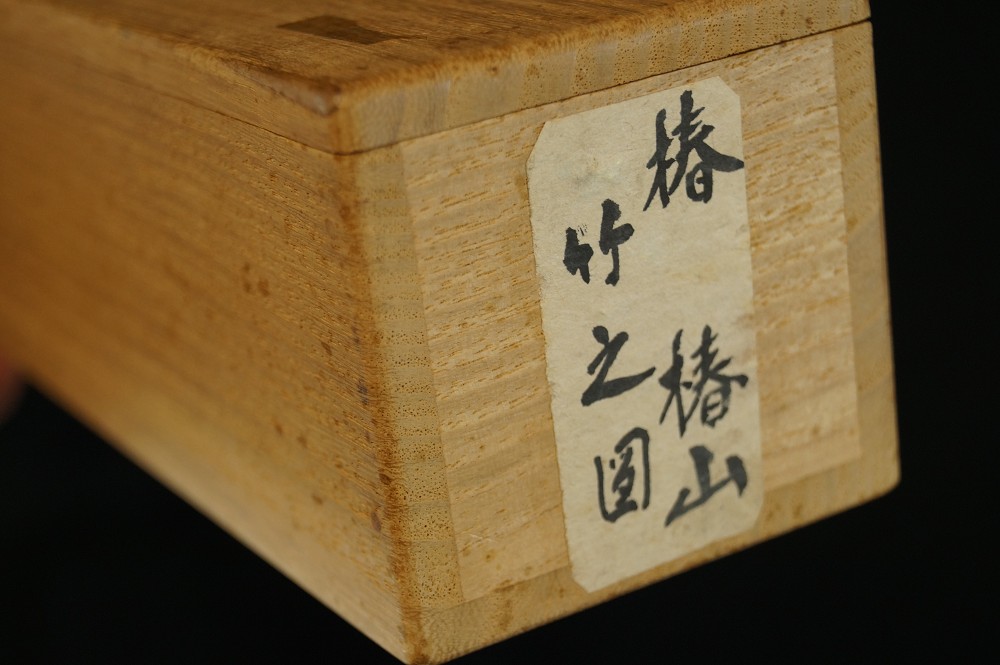 椿椿山
竹之圖